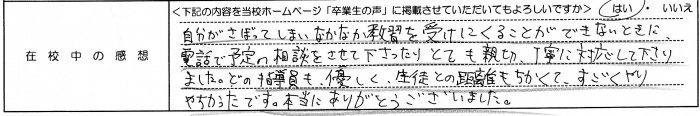 <下記の内容を当校ホームページ「卒業生の声」に掲載させていただいてもよろしいですか> はい ・ いいえ
在校中の感想
自分がさぼってしまいなかなか教習を受けにくることができないときに、
電話で予定の相談をさせて下さったりとても親切、丁寧に対応して下さり
ました。どの指導員も、優しく、生徒との距離もちかくて、すごくやり
やすかったです。本当にありがとうございました。